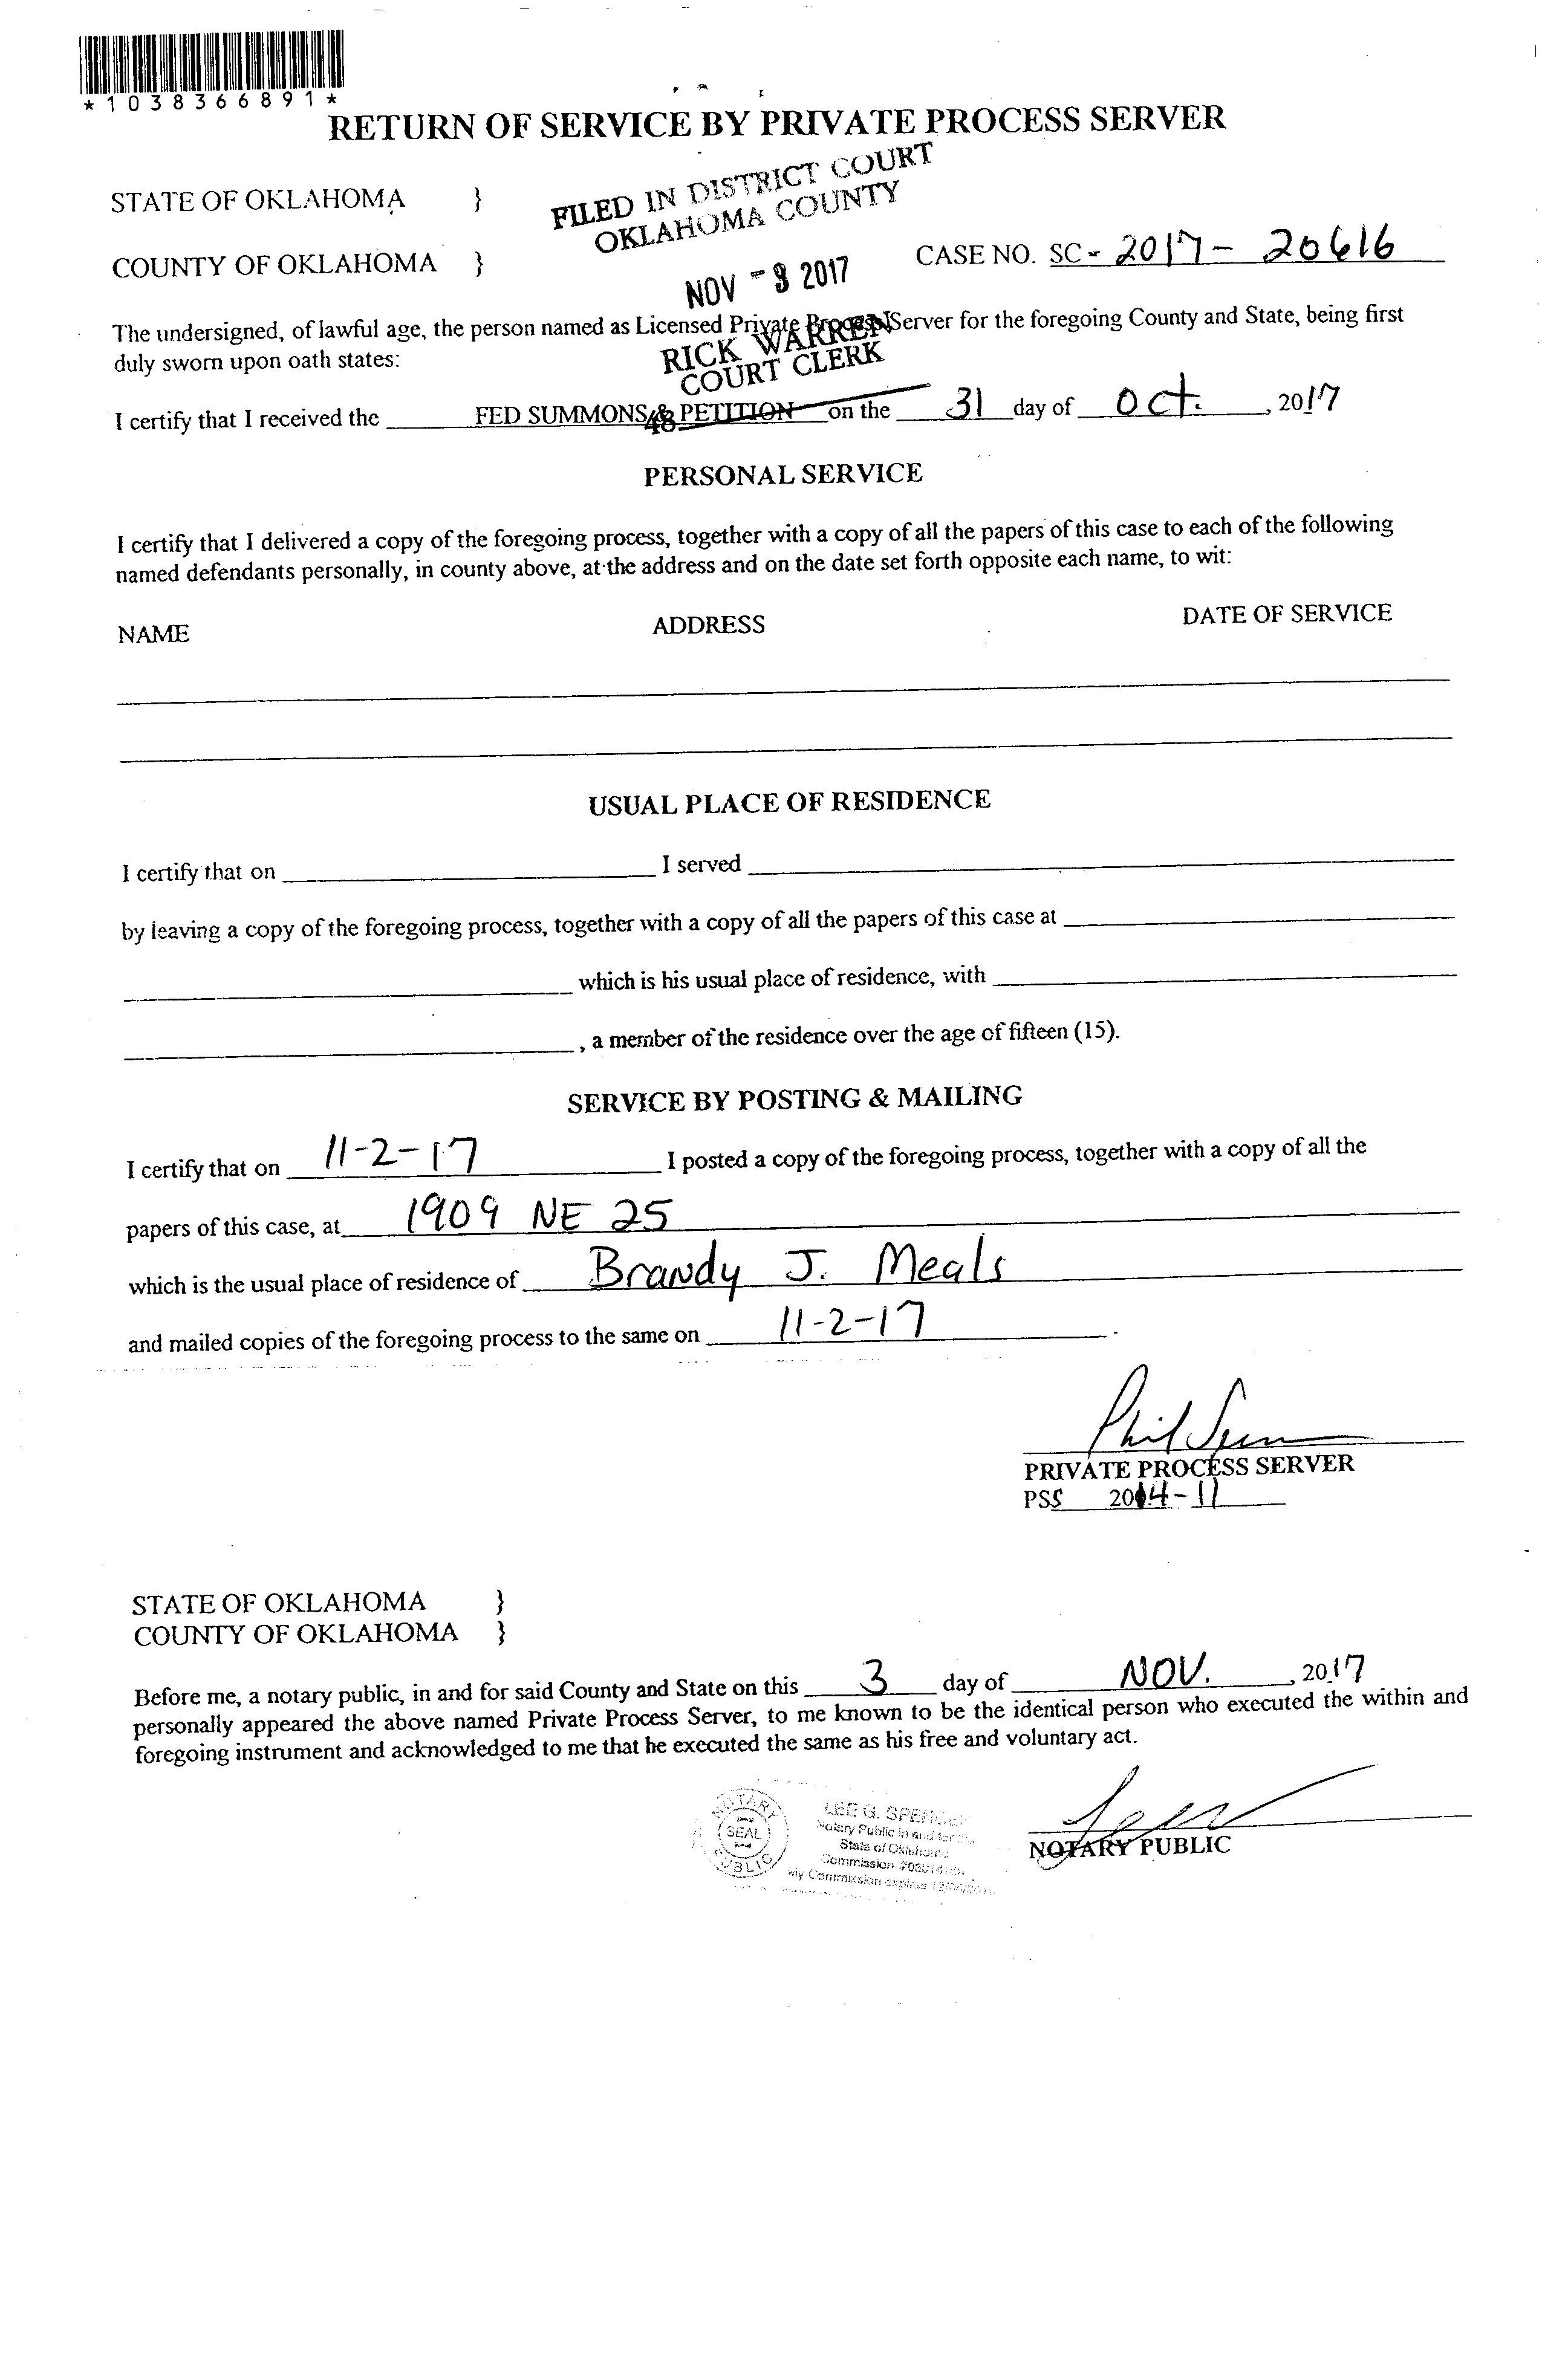 *1038366891*
RETURN OF SERVICE BY PRIVATE PROCESS SERVER
FILED IN DISTRICT COURT
OKLAHOMA COUNTY
STATE OF OKLAHOMA }
COUNTY OF OKLAHOMA }
CASE NO. SC - 2017 - 20616
NOV - 2017
The undersigned, of lawful age, the person named as Licensed Private Process Server for the foregoing County and State, being first
duly sworn upon oath states:
RICK WARREN
COURT CLERK
48
I certify that I received the FED SUMMONS & PETITION on the 31 day of Oct. , 2017
PERSONAL SERVICE
I certify that I delivered a copy of the foregoing process, together with a copy of all the papers of this case to each of the following
named defendants personally, in county above, at the address and on the date set forth opposite each name, to wit:
NAME ADDRESS DATE OF SERVICE
USUAL PLACE OF RESIDENCE
I certify that on I served
by leaving a copy of the foregoing process, together with a copy of all the papers of this case at
which is his usual place of residence, with
, a member of the residence over the age of fifteen (15).
SERVICE BY POSTING & MAILING
I certify that on 11-2-17 I posted a copy of the foregoing process, together with a copy of all the
papers of this case, at 1909 NE 25
which is the usual place of residence of Brandy J. Meals
and mailed copies of the foregoing process to the same on 11-2-17 .
Phil
PRIVATE PROCESS SERVER
PSS 2014-11
STATE OF OKLAHOMA }
COUNTY OF OKLAHOMA }
Before me, a notary public, in and for said County and State on this 3 day of NOV. , 2017
personally appeared the above named Private Process Server, to me known to be the identical person who executed the within and
foregoing instrument and acknowledged to me that he executed the same as his free and voluntary act.
NOTARY
SEAL
PUBLIC
LEE G.
Notary Public in and for the
State of Oklahoma
Commission
My Commission expires
NOTARY PUBLIC